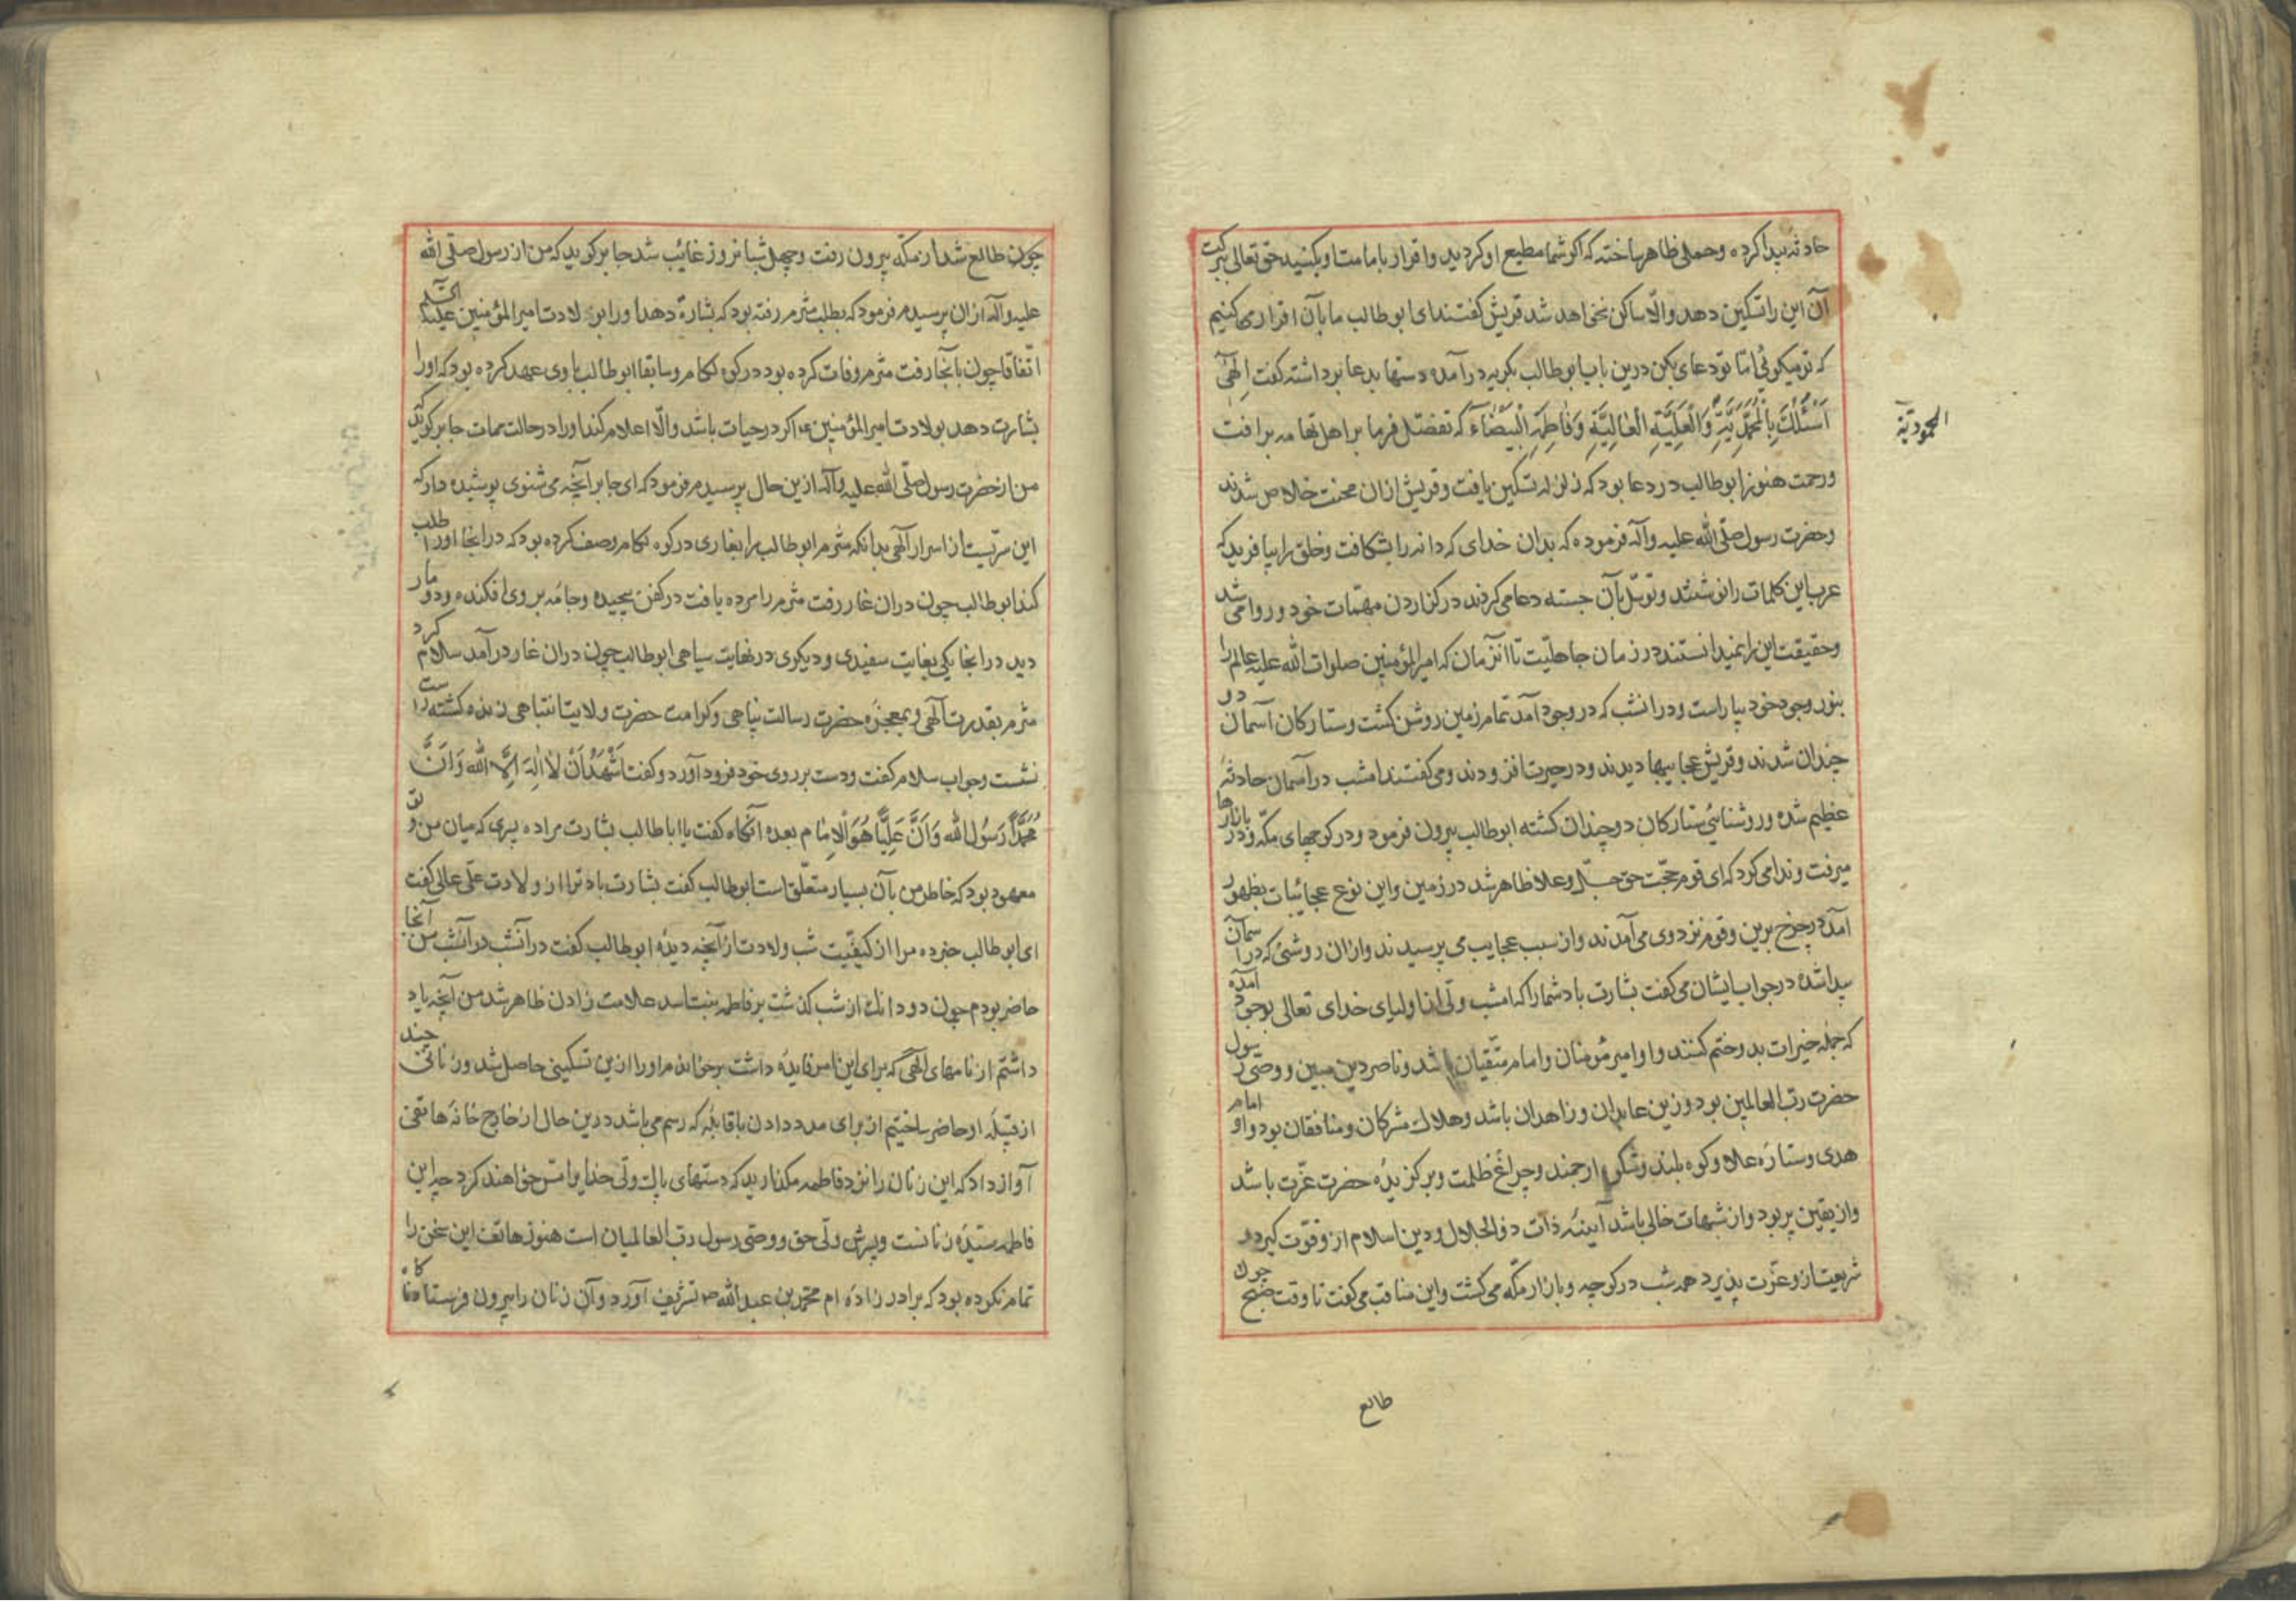 حادثه پیدا کرده و حملی ظاهر ساخته که اگر شما مطیع او کردید و اقرار بامامت او بکنید حق تعالی ببرکت
آن این را تسکین دهد و الّا ساکن نخواهد شد قریش گفتند ای ابو طالب ما بآن اقرار می کنیم
که تو میکوئی امّا تو دعای بکن درین باب ابو طالب بکریه درآمد و دستها بدعا برداشته گفت اِلٰهی
اَسْئَلُكَ بِالْمُحَمَّدِیَّةِ وَالْعَلَوِیَّةِ الْعَالِیَّةِ وَفَاطِمَةِ الْبَیْضَاءِ که تفضّل فرما بر اهل تهامه برافت
المحمودیّة
و رحمت هنوز ابو طالب در دعا بود که زلزله تسکین یافت و قریش ازان محنت خلاص شدند
و حضرت رسول صلّی الله علیه و آله فرموده که بدان خدای که دانه را بشکافت و خلق را بیافرید که
عرب این کلمات را نوشتند و توسّل بآن جسته دعا می کردند در کزاردن مهمّات خود و روا می شد
و حقیقت این را نمیدانستند در زمان جاهلیّت تا آنزمان که امیر المؤمنین صلوات الله علیه عالم را
بنور وجود خود بیاراست و درانشب که در وجود آمد تمام زمین روشن کشت و ستارکان آسمان دو
چندان شدند و قریش عجایبها دیدند و در حیرت افزودند و می کفتند امشب در آسمان حادثهٔ
عظیم شده و روشنائی ستارکان دو چندان کشته ابو طالب بیرون فرمود و در کوچهای مکّه و در بازارها
میرفت و ندا می کرد که ای قوم حجّت حق جلّ و علا ظاهر شد در زمین و این نوع عجائبات بظهور
آمد در چرخ برین و قوم نزد وی می آمدند و از سبب عجایب می پرسیدند و ازان روشنی که در آسمان
پیدا شده در جواب ایشان می کفت بشارت باد شما را که امشب ولی از اولیای خدای تعالی بوجود آمده
که جمله خیرات بدو ختم کنند و او امیر مؤمنان و امام متّقیان باشد و ناصر دین مبین و وصی رسول
حضرت ربّ العالمین بود و زین عابدان و زاهدان باشد و هلاك مشرکان و منافقان بود و او امام
هدی و ستارهٔ علا و کوه بلند و ارجمند و چراغ ظلمت و برکزیدهٔ حضرت عزّت باشد
و از یقین پر بود و از شبهات خالی باشد آیینهٔ ذات ذو الجلال و دین اسلام از و قوّت کیرد و
شریعت از و عزّت پذیرد همه شب در کوچه و بازار مکّه می کشت و این مناقب می کفت تا وقت صبح چون
طالع
چون طالع شد از مکّه بیرون رفت و چهل شبانروز غائب شد جابر کوید که من از رسول صلّی الله
علیه و آله ازان پرسیدم فرمود که بطلب مثرم رفته بود که بشارة دهد او را بولادت امیر المؤمنین علیه السلم
اتّفاقا چون بآنجا رفت مثرم وفات کرده بود در کوه لکام و سابقا ابو طالب باوی عهد کرده بود که او را
بشارت دهد بولادت امیر المؤمنین ع اکر در حیات باشد و الّا اعلام کند او را در حالت ممات جابر کوید
من از حضرت رسول صلّی الله علیه و آله ازین حال پرسیدم فرمود که ای جابر آنچه می شنوی پوشیده دار که
این سرّیست از اسرار آلهی بدانکه مثرم ابو طالب را بغاری در کوه لکام وصف کرده بود که در انجا او را طلب
کند ابو طالب چون دران غار رفت مثرم را مرده یافت در کفن پیچیده و جامه بر وی افکنده و دو مار
دید در انجا یکی بغایت سفیدی و دیکری در نهایت سیاهی ابو طالب چون دران غار در آمد سلام کرد
مثرم بقدرت آلهی و بمعجزهٔ حضرت رسالت پناهی و کرامت حضرت ولایت انتباهی زنده کشته راست
نشست و جواب سلام کفت و دست بر روی خود فرود آورد و کفت اَشْهَدُ اَنْ لَا اِلٰهَ اِلَّا اللّٰه وَ اَنَّ
مُحَمَّدًا رَسُولُ اللّٰه وَ اَنَّ عَلِیًّا هُوَ الْاِمَام بعده آنکاه کفت یا ابا طالب بشارت مرا ده بسری که میان من و تو
معهود بود که خاطر من بآن بسیار متعلّق است ابو طالب کفت بشارت باد ترا از ولادت علی عالی کفت
ای ابو طالب خبر ده مرا از کیفیّت شب ولادت از آنچه دیدهٔ ابو طالب کفت در آنشب در آنشب من آنجا
حاضر بودم چون دو دانك از شب کذشت بر فاطمه بنت اسد علامت زادن ظاهر شد من آنچه یاد
داشتم از نامهای آلهی که برای این امر فایده داشت بر خواندم او را ازین تسکینی حاصل شد و زنانی چند
از قبیلهٔ او حاضر ساختیم از برای مدد دادن با قابله که رسم می باشد درین حال از خارج خانه هاتفی
آواز داد که این زنان را نزد فاطمه مکذارید که دستهای پاك ولی خدا را مسّ خواهند کرد چه این
فاطمه سیّدهٔ زنانست و پسرش ولی حق و وصی رسول ربّ العالمیان است هنوز هاتف این سخن را
تمام نکرده بود که برادر زاده ام محمّد بن عبد الله ص تشریف آورد و آن زنان را بیرون فرستاد